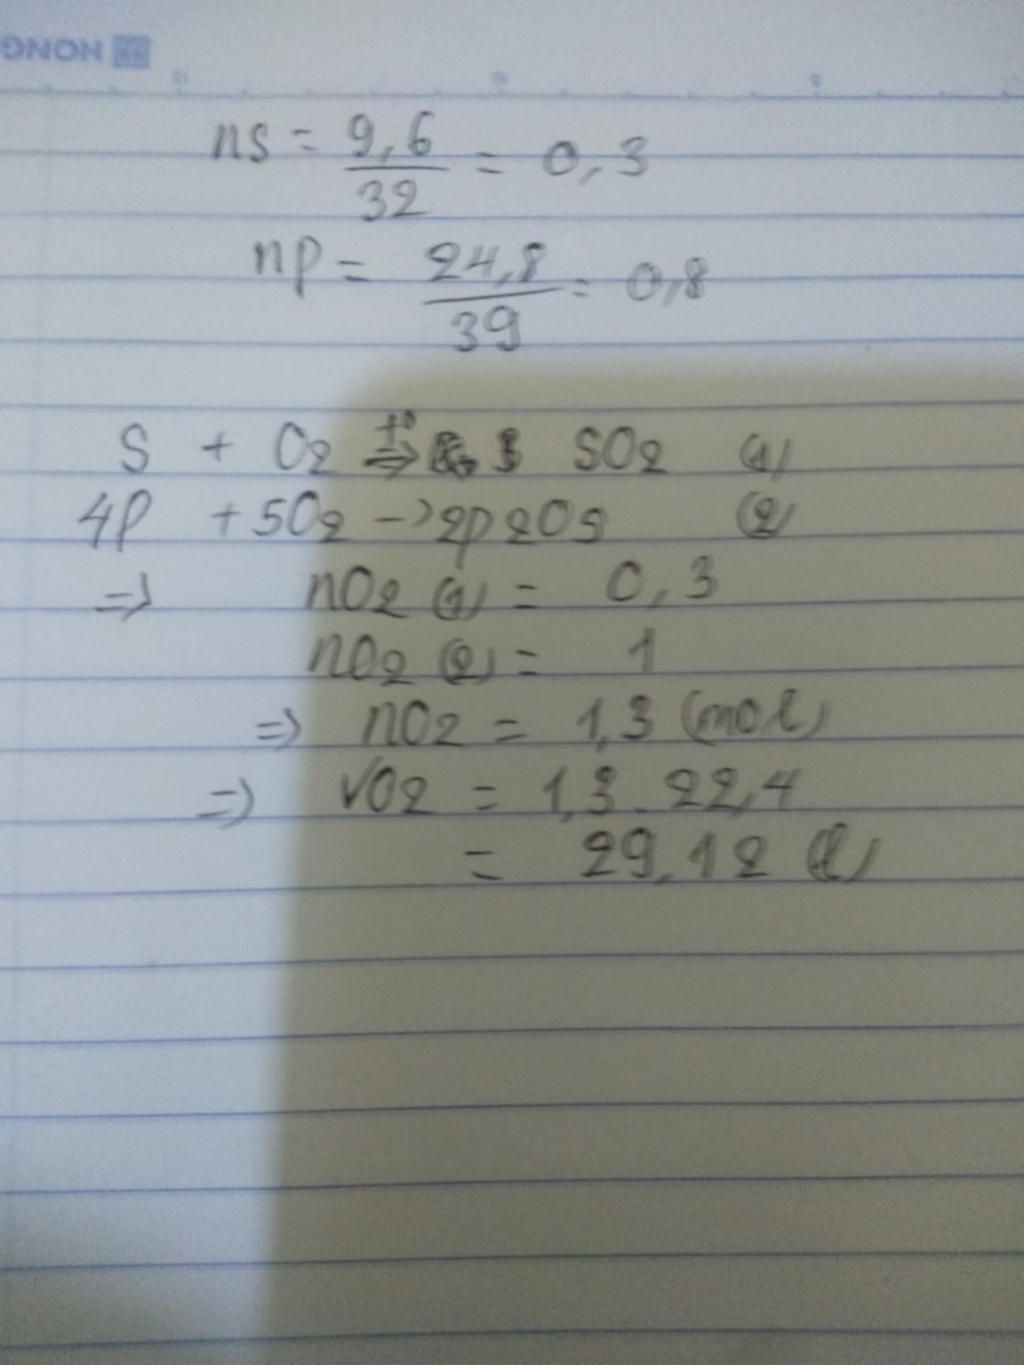 HONG
ns = 9,6/32 = 0,3
np = 24,8/39 = 0,8
S + O2 t°⇒ SO2 (1)
4P + 5O2 -> 2p2O5 (2)
=> nO2 (1) = 0,3
nO2 (2) = 1
=> nO2 = 1,3 (mol)
=> VO2 = 1,3 . 22,4
= 29,12 (l)